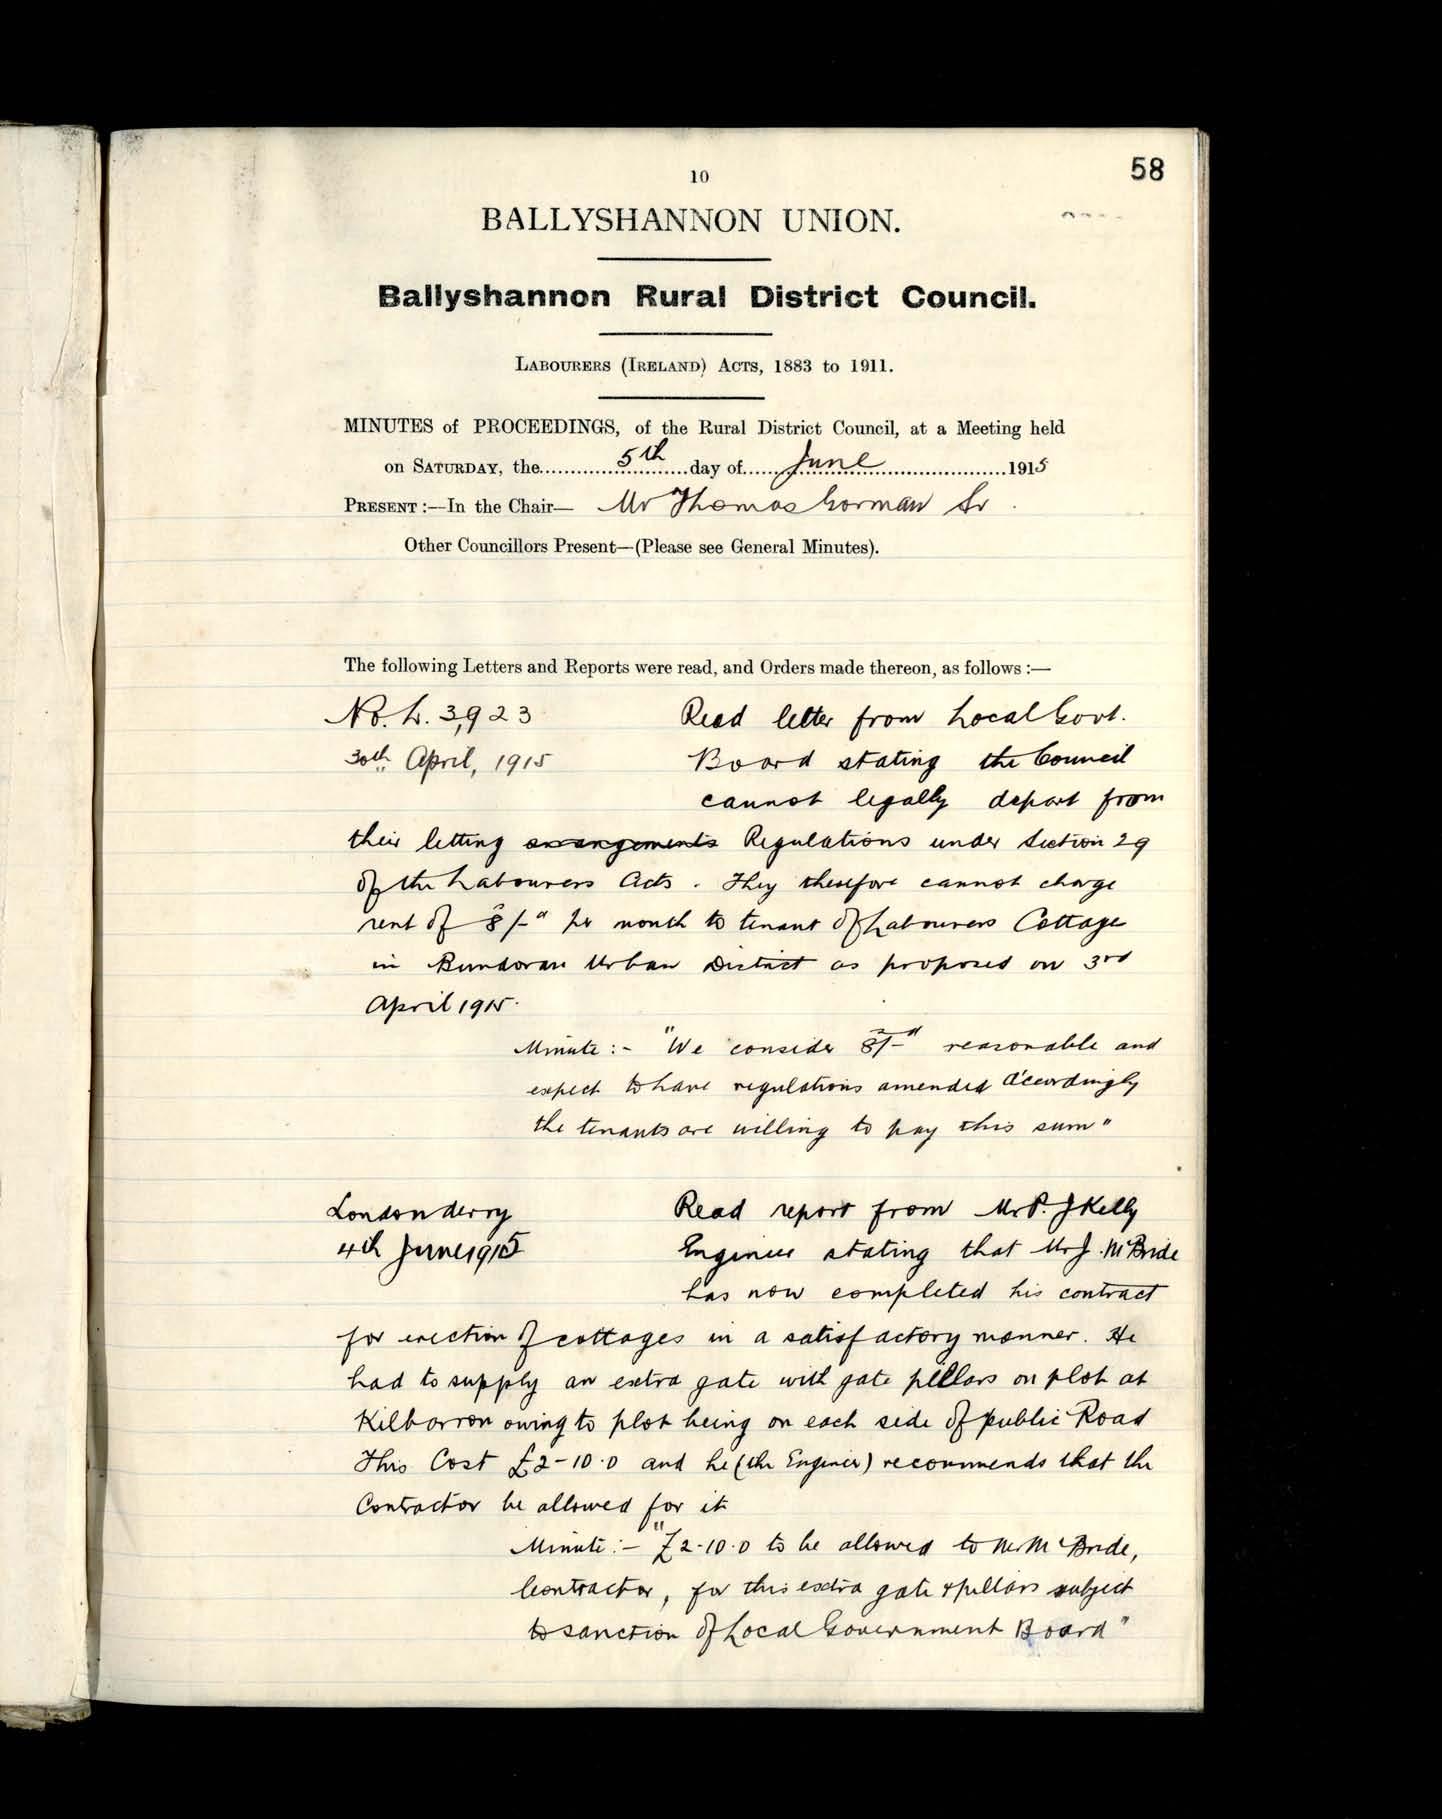 58
10
BALLYSHANNON UNION.
Ballyshannon Rural District Council.
LABOURERS (IRELAND) ACTS, 1883 to 1911.
MINUTES of PROCEEDINGS, of the Rural District Council, at a Meeting held
on SATURDAY, the 5th day of June 1915
PRESENT:—In the Chair— Mr Thomas Gorman Sr
Other Councillors Present—(Please see General Minutes).
The following Letters and Reports were read, and Orders made thereon, as follows:—
No. L. 3,923 Read letter from Local Govt.
30th April, 1915 Board stating the Council
cannot legally depart from
their letting arrangements Regulations under Section 29
of the Labourers Acts. They therefore cannot charge
rent of 8/-d per month to tenant of Labourers Cottage
in Bundoran Urban District as proposed on 3rd
April 1915.
Minute:- "We consider 8/-d reasonable and
expect to have regulations amended accordingly
the tenants are willing to pay this sum"
Londonderry Read report from Mr P. J Kelly
4th June 1915 Engineer stating that Mr J. McBride
has now completed his contract
for erection of cottages in a satisfactory manner. He
had to supply an extra gate with gate pillars on plot at
Kilbarron owing to plot being on each side of public Road
This Cost £2-10.0 and he (the Engineer) recommends that the
Contractor be allowed for it
Minute:- "£2-10.0 to be allowed to Mr McBride,
Contractor, for this extra gate & pillars subject
to sanction of Local Government Board"